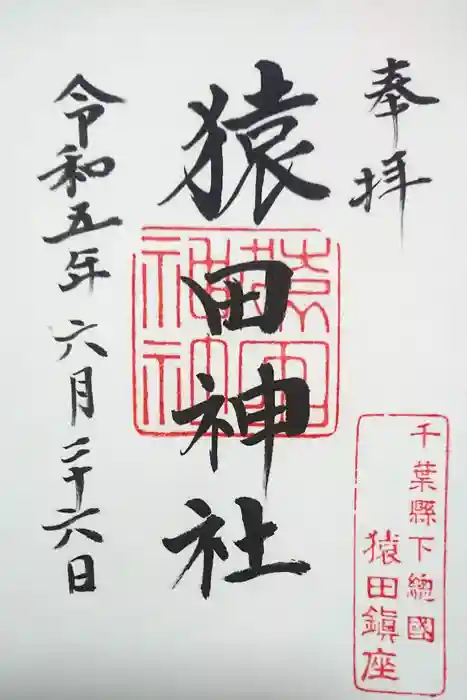 奉拝
千葉縣下總國
猿田鎭座
猿田神社
猿田神社
令和五年六月二十六日